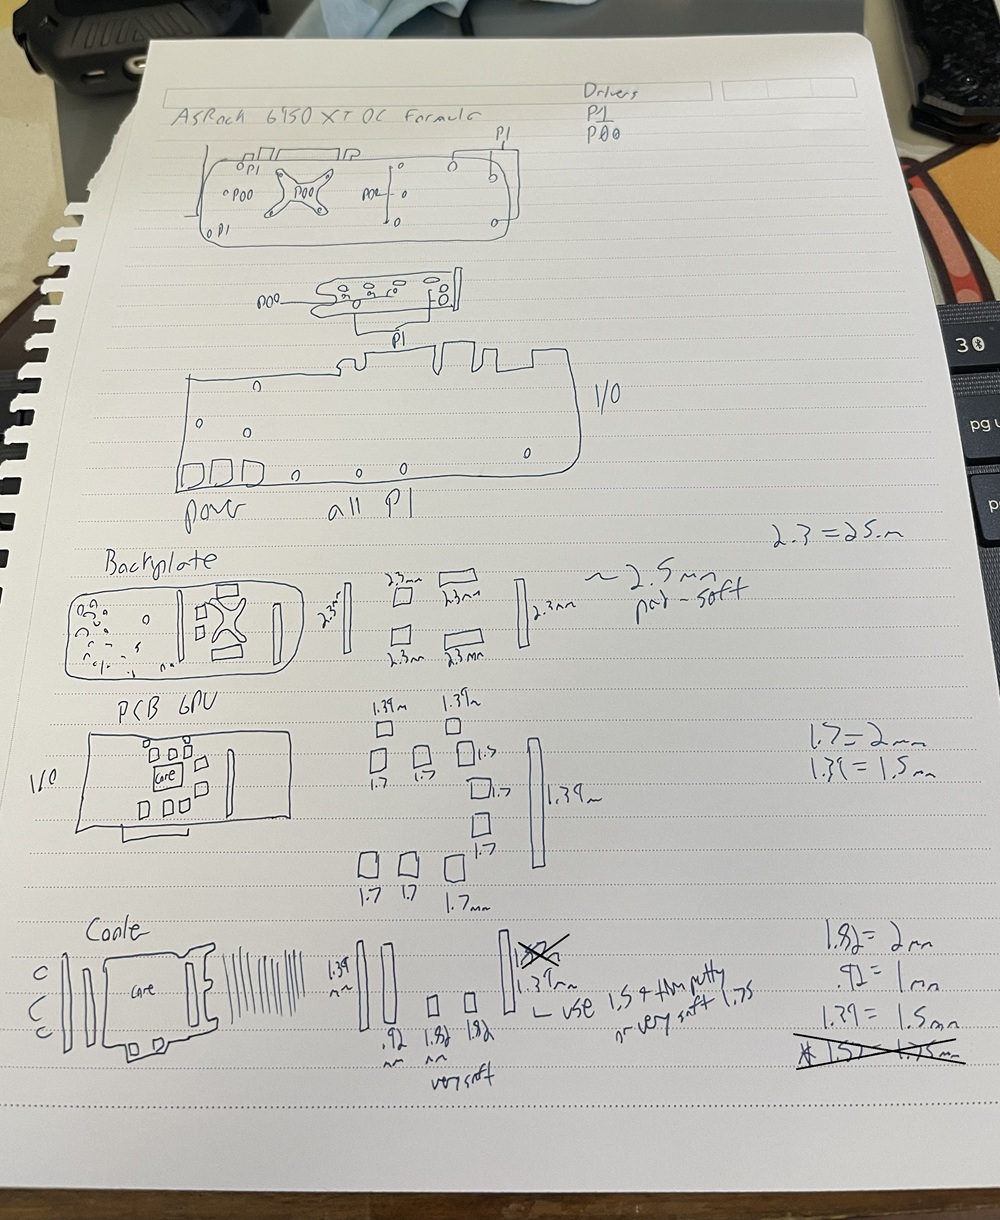 Drivers
P1
P00
ASRock 6950 XT OC Formula
P1
P1
P00
P00
P00
P1
P00
P1
I/O
power
all P1
2.3 = 2.5mm
Backplate
2.3mm
2.3mm
2.3mm
2.3mm
2.3mm
2.3mm
~ 2.5mm
pad - soft
PCB GPU
1.39m
1.39m
I/O
core
1.7
1.7
1.7
1.7
1.7
1.7
1.7
1.7mm
1.39m
1.7 = 2mm
1.39 = 1.5mm
Cooler
core
1.39
mm
.92
mm
1.82
mm
1.82
very soft
1.39mm
use 1.5 + thm putty
or very soft 1.75
1.82 = 2mm
.92 = 1mm
1.39 = 1.5mm
30
pg
p